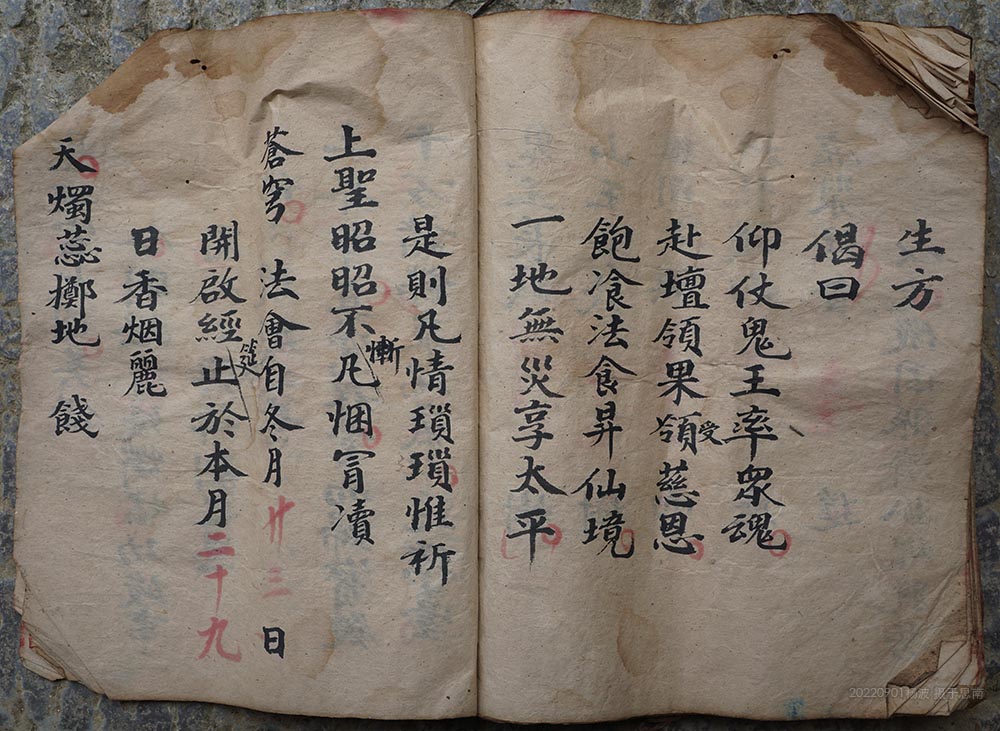 生方
偈曰
仰仗鬼王率眾魂
赴壇領果領受慈恩
飽飡法食昇仙境
一地無災享太平
是則凡情瑣瑣惟祈
上聖昭昭不慚凡悃冐瀆
蒼穹 法會自冬月廿三日
開啟經筵止於本月二十九
日香烟麗
天燭蕊擲地 餞
20220901杨波 摄于思南